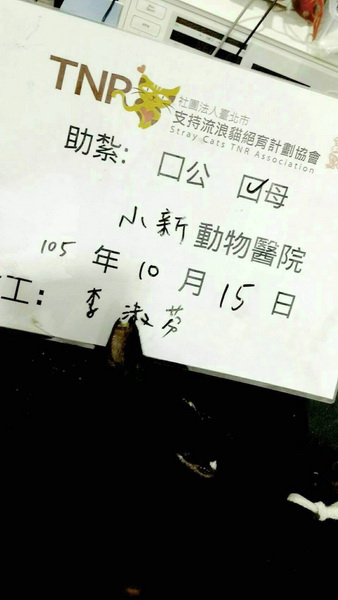 TNR
社團法人臺北市
支持流浪貓絕育計劃協會
Stray Cats TNR Association
助紮: □公 ☑母
小新動物醫院
105年10月15日
工: 李淑芬